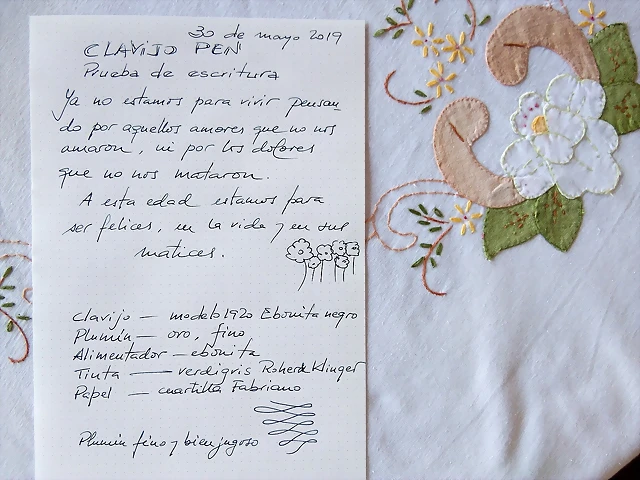 30 de mayo 2019
CLAVIJO PEN
Prueba de escritura
Ya no estamos para vivir pensan
do por aquellos amores que no nos
amaron, ni por los dolores
que no nos mataron.
A esta edad estamos para
ser felices, en la vida y en sus
matices.
Clavijo — modelo 1920 Ebonita negro
Plumín — oro, fino
Alimentador — ebonita
Tinta — verdigris Roherd Klinger
Papel — cuartilla Fabriano
Plumín fino y bien jugoso